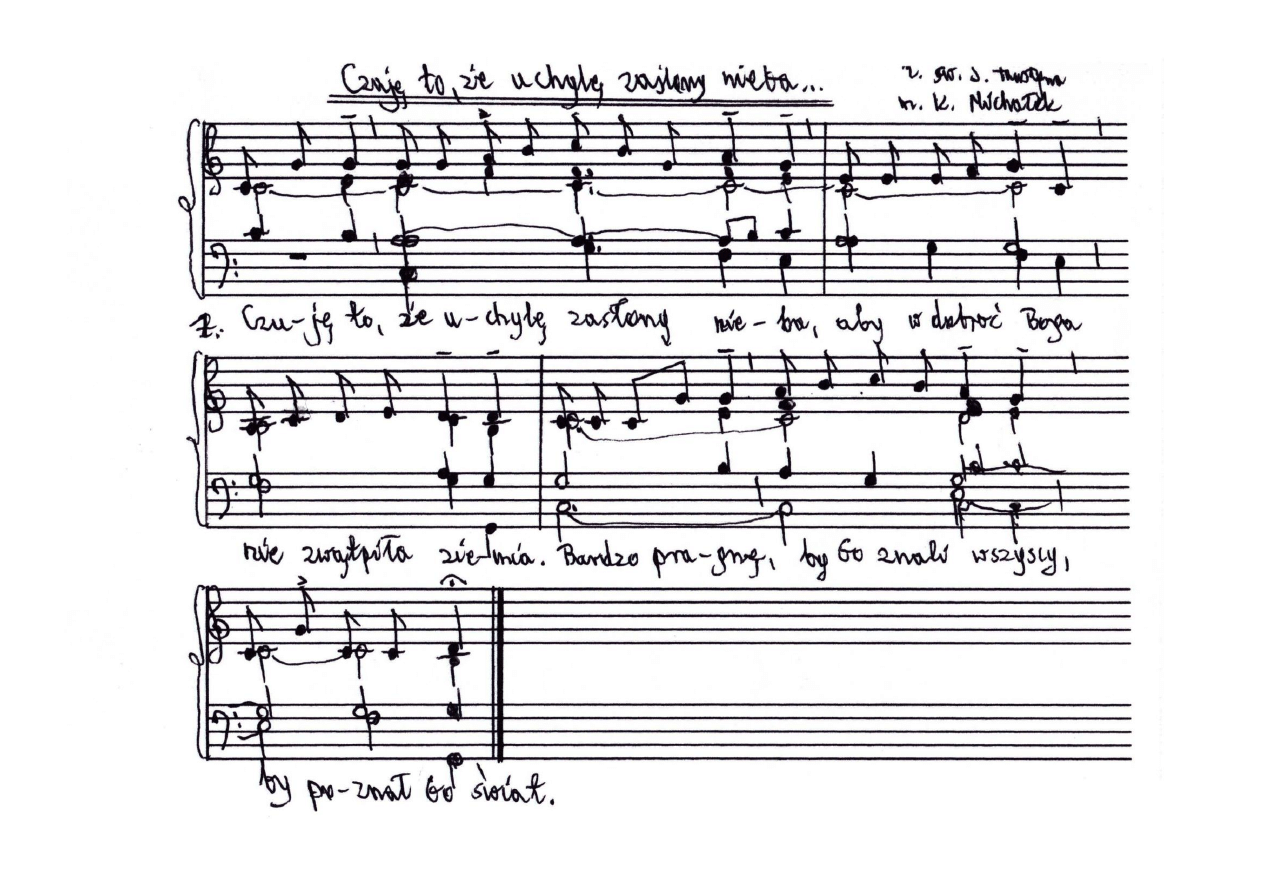 Czuję to, że uchylę zasłony nieba...
m. K. Michałek
1. Czu-ję to, że u-chylę zasłony nie-ba, aby w dobroć Boga
nie zwątpiła zie-mia. Bardzo pra-gnę, by Go znali wszyscy,
by po-znał Go świat.